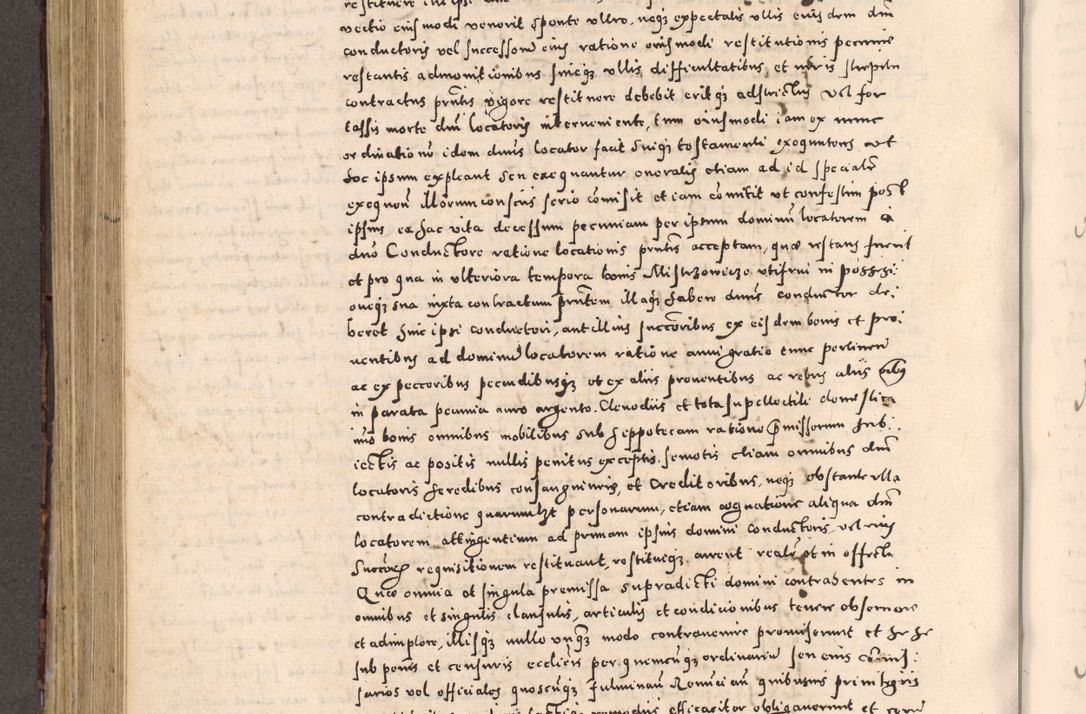 vectio eiusmodi venerit sponte ultro, neq; expectatis ullis eius dem dni
conductoris vel successorum eius ratione eiusmodi restitutionis pecunie
restantis admonitionibus sineq; ullis difficultatibus et iuris strepitu
contractus pntis vigore restituere debebit eritq; adstrictus vel for
tassis morte dni locatoris interveniente, tum eiusmodi iam ex nunc
ordinationem idem dnus locator facit suiq; testamenti exequutores ut
hoc ipsum expleant seu exequantur oneratis etiam ad id specialr
exequen illorum conscus serio comisit et iam comittit ut confestim post
ipsius ex hac vita decessum pecuniam per ipsum dominum locatorem a
dno Conductore ratione locationis pntis acceptam, quæ restans fuerit
et pro qua in ulteriora tempora bonis Mistrzowicze utifrui in possessi:
oneq; sua iuxta contractum pntem illaq; habere dnus conductor de:
beret huic ipsi conductori, aut illius succoribus ex eisdem bonis et pro:
ventibus ad dominum locatorem ratione anni gratie tunc pertinen
ac ex peccoribus pecudibusq; ut ex aliis proventibus ac rebus aliis
in parata pecunia auro argento. Clenodiis et tota supellectile domestica
imo bonis omnibus mobilibus sub heppotecam ratione pmissorum sub:
iectis ac positis nullis penitus exceptis. semotis etiam omnibus dni
locatoris heredibus consanguineis, et Creditoribus, neq; obstante ulla
contradictione quarumlibet personarum, etiam cognatione aliqua dnm
locatorem attingentium ad primam ipsius domini conductoris vel eius
Succorum requisitionem restituant, restitueq; curent realr et in effectu
Quæ omnia et singula premissa supradicti domini contrahentes in
omnibus et singulis clausulis, articulis et condicionibus tenere observare
et adimplere, illisq; nullo unq; modo contravenire promiserunt et
sub penis et censuris ecclicis per quemcumq; ordinarium seu eius comis:
sarios vel officiales quoscumq; fulminan Renuncian quibusuis privilegiis
efficaciter obligaverunt et